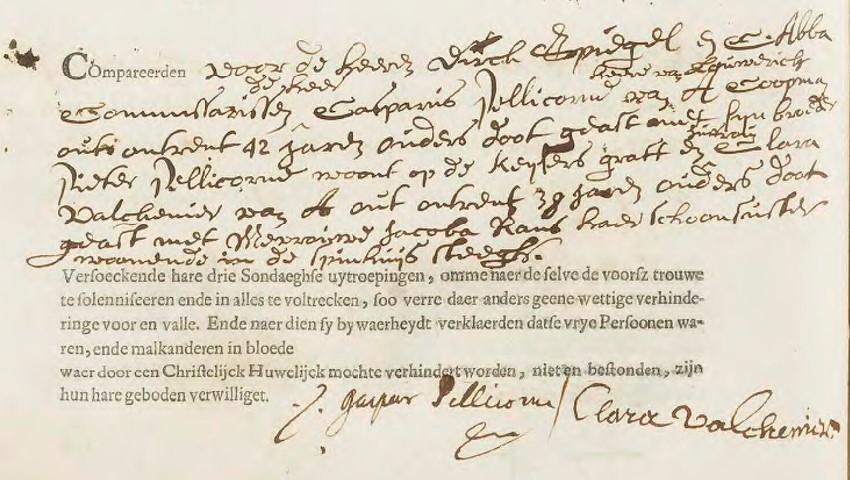 COmpareerden voor de heeren Dirck Spiegel en C. Abba
de heer heere van
Commissarissen Casparus Pellicorne van A Coopman
out ontrent 42 Jaren ouders doot geast met syn broeder
Pieter Pellicorne woont op de Keysers graft en Clara
Valckenier van A out ontrent 38 Jaren ouders doot
geast met Mevrouwe Jacoba Rans haer schoonsuster
woonende in de spinhuis steegh.
Versoeckende hare drie Sondaeghse uytroepingen, omme naer de selve de voorsz trouwe
te solenniseeren ende in alles te voltrecken, soo verre daer anders geene wettige verhinde-
ringe voor en valle. Ende naer dien sy by waerheydt verklaerden datse vrye Persoonen wa-
ren, ende malkanderen in bloede
waer door een Christelijck Huwelijck mochte verhindert worden, niet en bestonden, zijn
hun hare geboden verwilliget.
J. Gaspar Pellicorne / Clara Valckenier